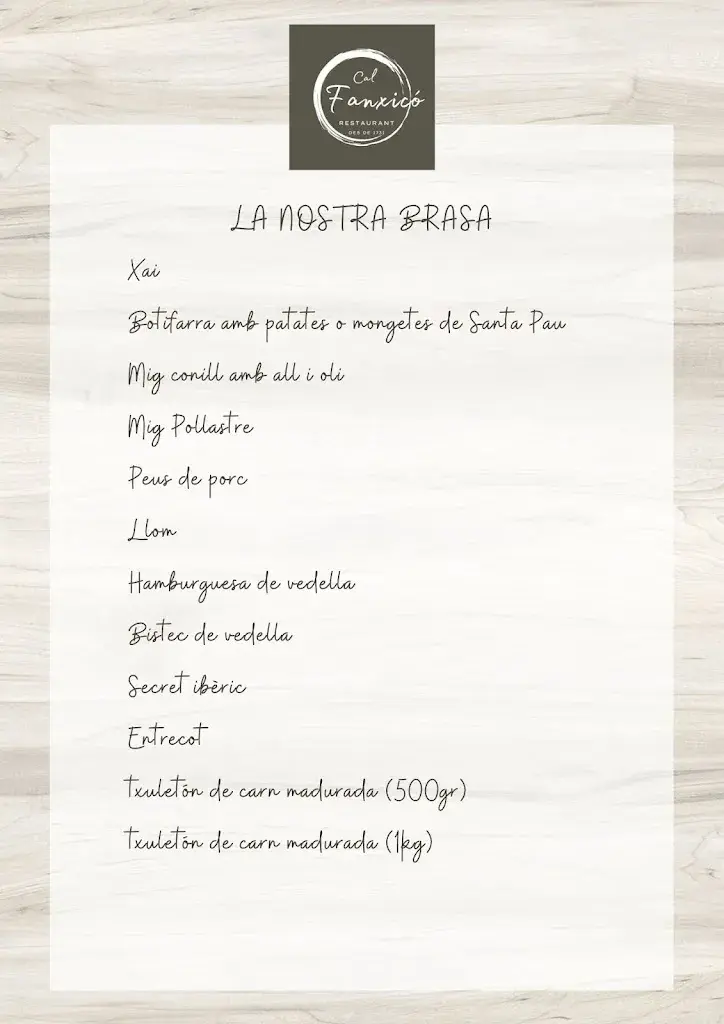 Cal
Fanxicó
RESTAURANT
DES DE 1731
LA NOSTRA BRASA
Xai
Botifarra amb patates o mongetes de Santa Pau
Mig conill amb all i oli
Mig Pollastre
Peus de porc
Llom
Hamburguesa de vedella
Bistec de vedella
Secret ibèric
Entrecot
txuletón de carn madurada (500gr)
txuletón de carn madurada (1kg)